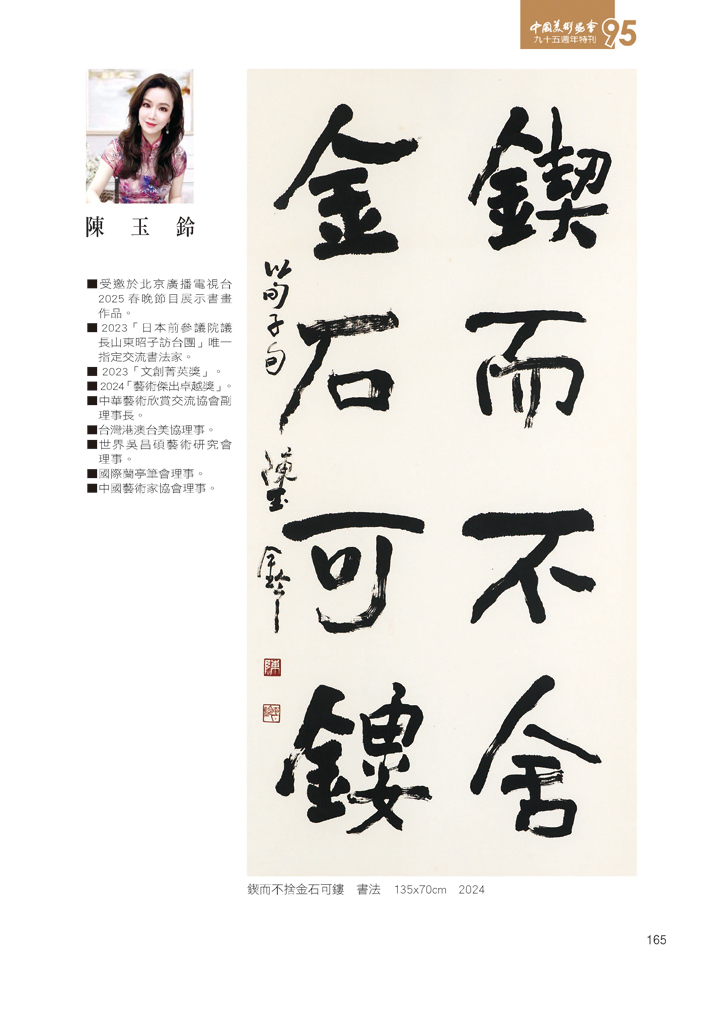 中國美術協會
九十五週年特刊 95
陳玉鈴
■受邀於北京廣播電視台
2025 春晚節目展示書畫
作品。
■ 2023「日本前參議院議
長山東昭子訪台團」唯一
指定交流書法家。
■ 2023「文創菁英獎」。
■ 2024「藝術傑出卓越獎」。
■中華藝術欣賞交流協會副
理事長。
■台灣港澳台美協理事。
■世界吳昌碩藝術研究會
理事。
■國際蘭亭筆會理事。
■中國藝術家協會理事。
鍥而不舍
金石可鏤
荀子句 陳玉鈴
鍥而不捨金石可鏤 書法 135x70cm 2024
165